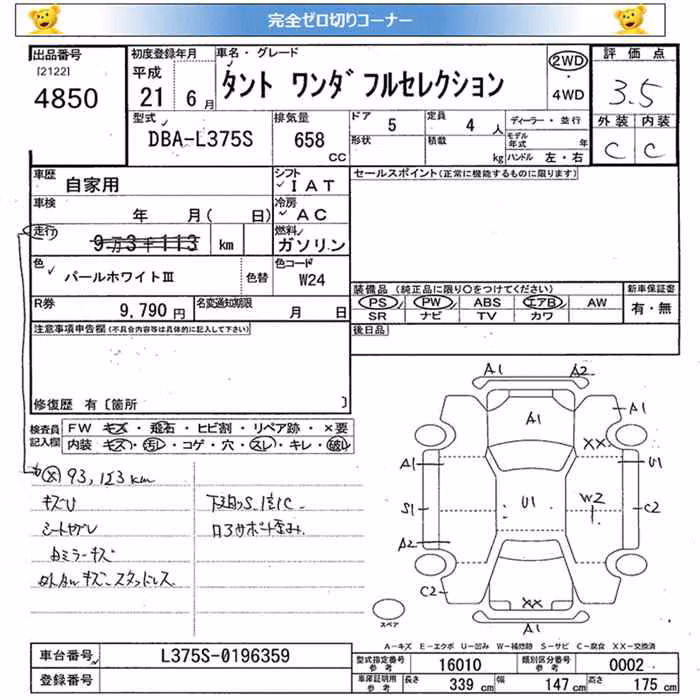 完全ゼロ切りコーナー
出品番号 初度登録年月 車名・グレード 評価点
[2122] 平成 タント ワンダフルセレクション 2WD
4850 21 6月 ・4WD 3.5
型式 排気量 ドア 5 定員 4人 ディーラー・並行 外装 内装
DBA-L375S 658 CC 形状 積載 kg モデル年式 年 C C
ハンドル 左・右
車歴 自家用 シフト IAT セールスポイント(正常に機能するものに限ります)
車検 年 月( 日) 冷房 AC
走行 9万3千113 km 燃料 ガソリン
色 パールホワイトⅢ 色替 色コード W24
装備品 (純正品に限り○をつけてください) 新車保証書
R券 9,790円 名変通知期限 月 日 PS PW ABS エアB AW 有・無
SR ナビ TV カワ
注意事項申告欄(不具合内容等は具体的に記入して下さい) 後日品
修復歴 有〔箇所 〕
検査員 FW キズ・飛石・ヒビ割・リペア跡・×要
記入欄 内装 キズ・汚レ・コゲ・穴・スレ・キレ・破レ
A1 A2
A1 A1
XX
A1 U1
S1 U1 W2 C2
A2
C2
XX
A1
93,123km
キズU
シートヤブレ
カミラーキズ
スタッドレス
スペア
A-キズ E-エクボ U-凹み W-補修跡 S-サビ C-腐食 XX-交換済
車台番号 L375S-0196359 型式指定番号 参考 16010 類別区分番号 参考 0002
登録番号 車庫証明用 参考 長さ 339 cm 幅 147 cm 高さ 175 cm